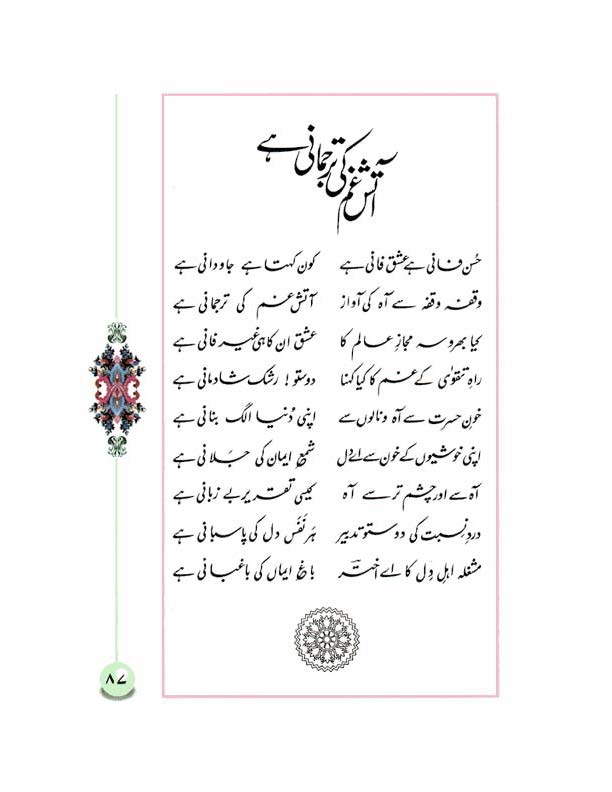 آتشِ غم کی ترجمانی ہے
حُسن فانی ہے عشق فانی ہے کون کہتا ہے جاودانی ہے
وقفہ وقفہ سے آہ کی آواز آتشِ غم کی ترجمانی ہے
کیا بھروسہ مجازِ عالم کا عشق ان کا ہی غیر فانی ہے
راہِ تقویٰ کے غم کا کیا کہنا دوستو! رشکِ شادمانی ہے
خونِ حسرت سے آہ و نالوں سے اپنی دُنیا الگ بنانی ہے
اپنی خوشیوں کے خون سے اے دل شمعِ ایمان کی جَلانی ہے
آہ سے اور چشمِ تر سے آہ کیسی تقدیرِ بے زبانی ہے
دردِ نسبت کی دوستو تدبیر ہَر نَفَس دل کی پاسبانی ہے
مشغلہ اہلِ دِل کا اے اختر باغِ ایماں کی باغبانی ہے
۸۷